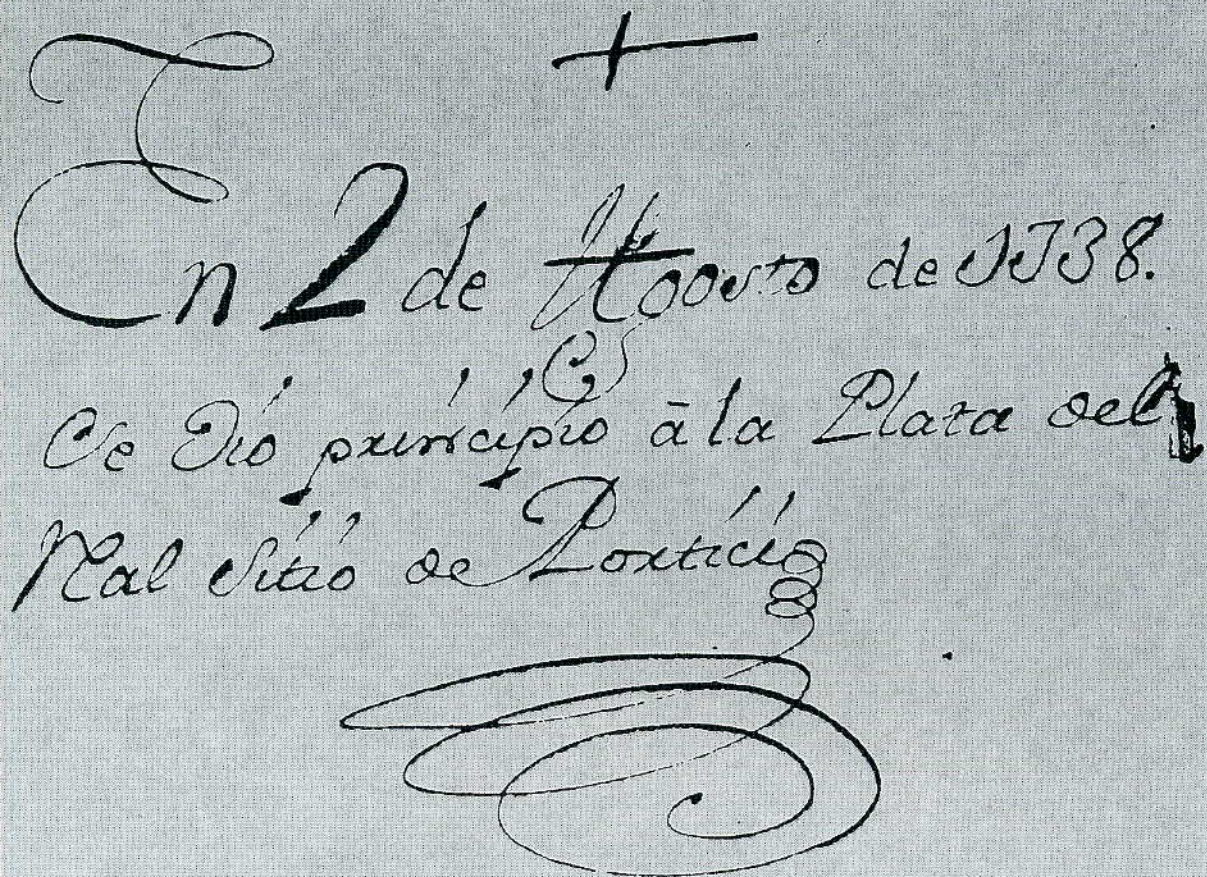 +
En 2 de Agosto de 1738.
Se Dió principio à la Plaza del
Real Sitio de Portici